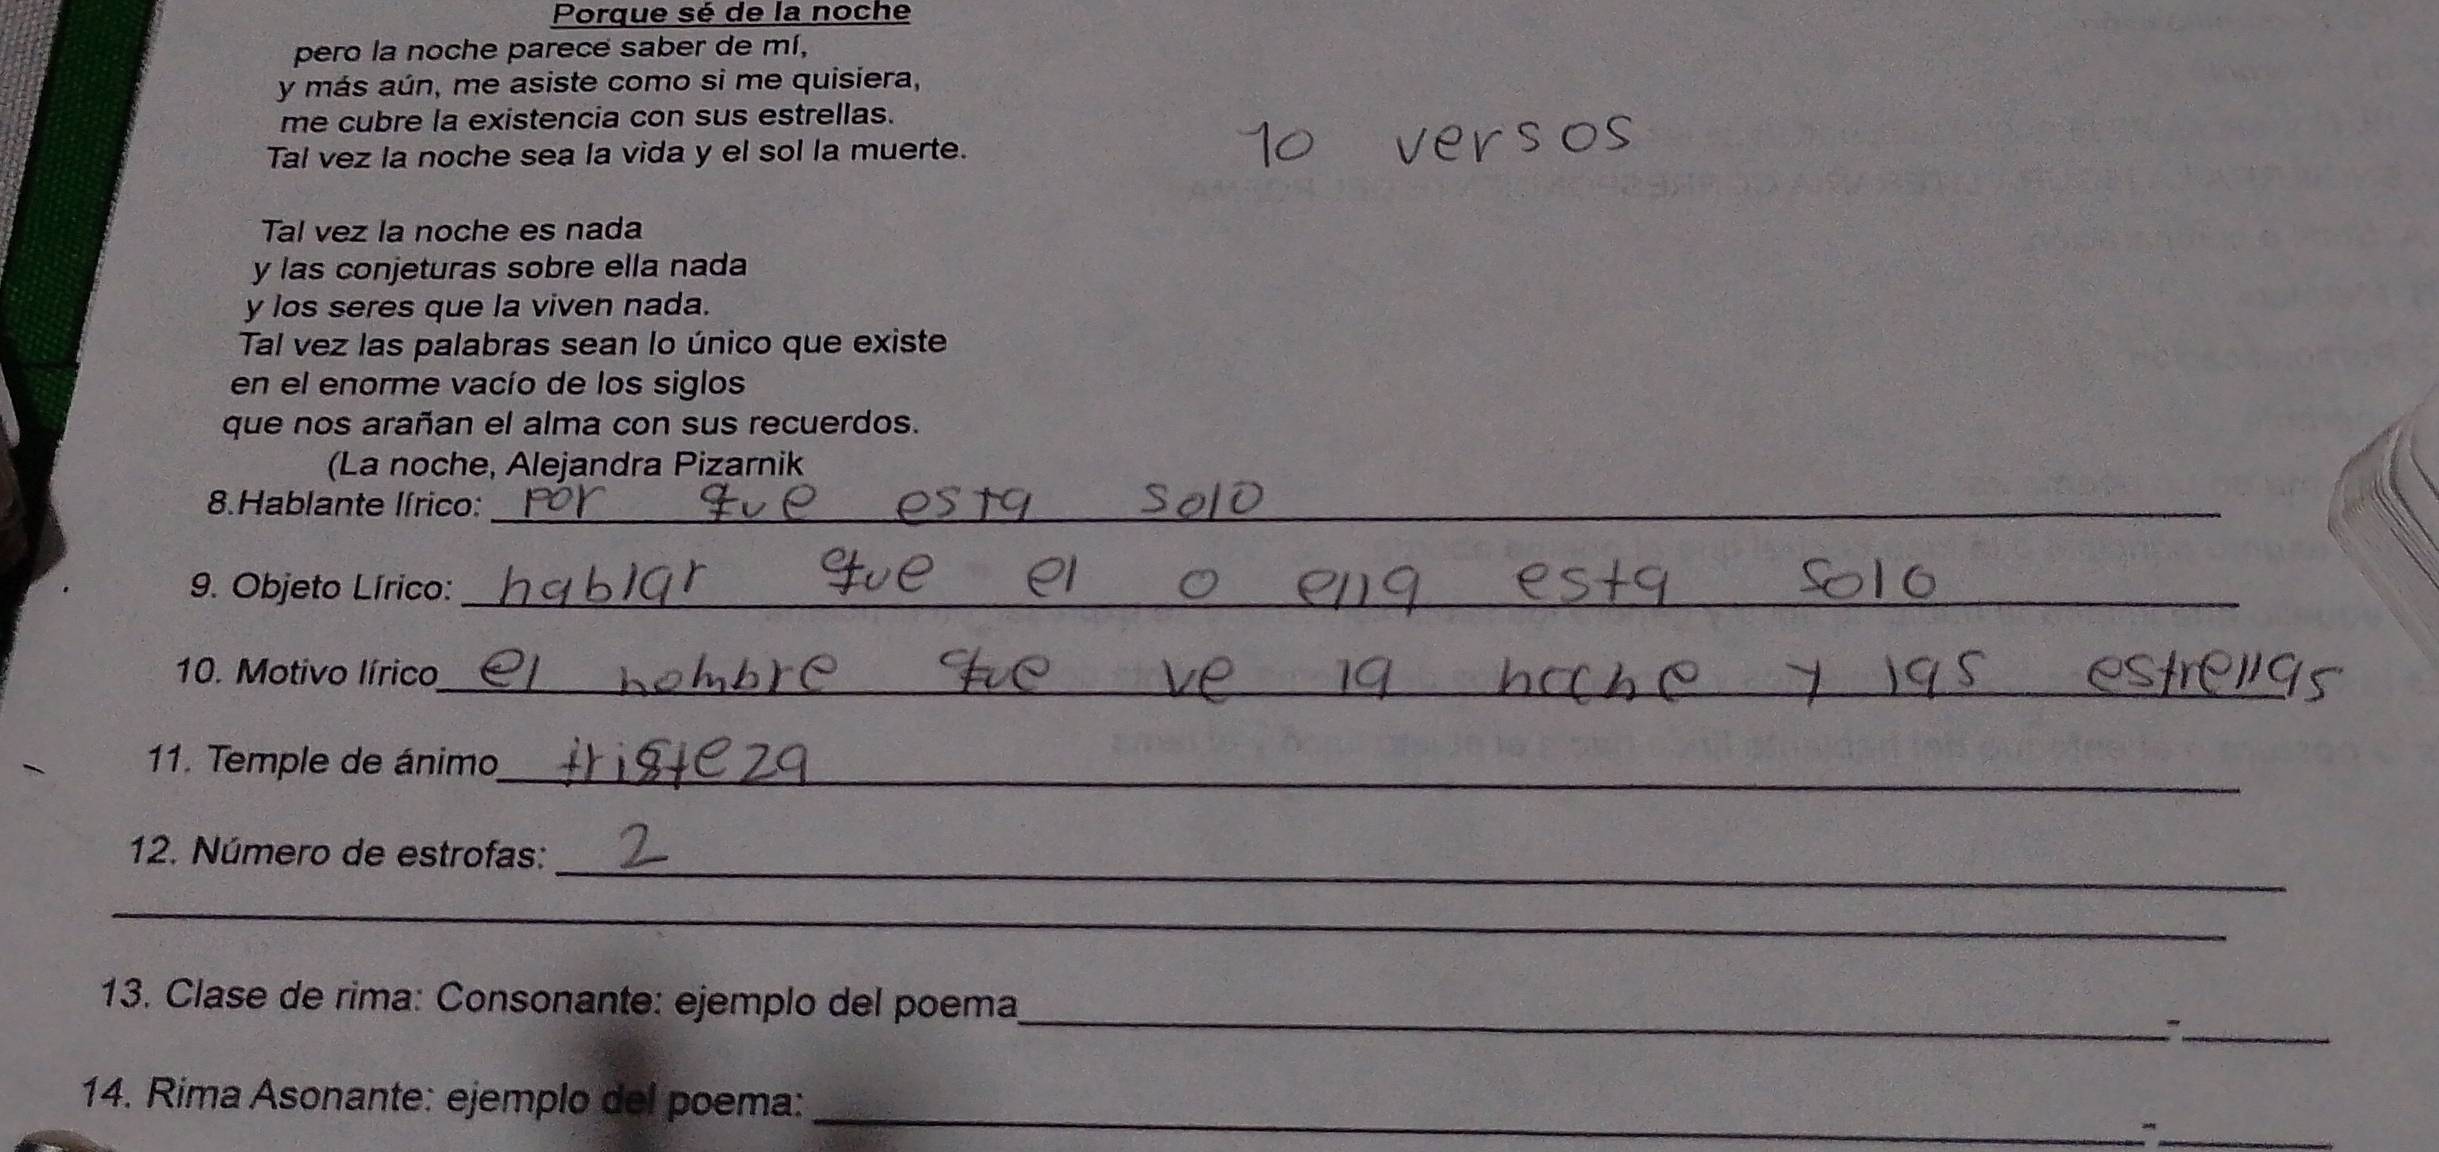 Porque sé de la noche
pero la noche parece saber de mí,
y más aún, me asiste como si me quisiera,
me cubre la existencia con sus estrellas.
Tal vez la noche sea la vida y el sol la muerte.
10 versos
Tal vez la noche es nada
y las conjeturas sobre ella nada
y los seres que la viven nada.
Tal vez las palabras sean lo único que existe
en el enorme vacío de los siglos
que nos arañan el alma con sus recuerdos.
(La noche, Alejandra Pizarnik
8.Hablante lírico: por que esta solo
9. Objeto Lírico: hablar que el o ella esta solo
10. Motivo lírico el hombre que ve la noche y las estrellas
11. Temple de ánimo tristeza
12. Número de estrofas: 2
13. Clase de rima: Consonante: ejemplo del poema - 
14. Rima Asonante: ejemplo del poema: -